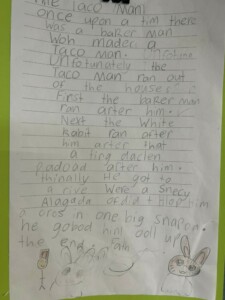 The Taco Man!
once upon a tim there
was a baker man
woh mader a
Taco man.
Unfortunately the
Taco Man ran out
of the house.
First the baker man
ran after him.
Next the White
Rabit ran after
him after that
a ting
after him.
thinally He got to
a rive Were a Snecy
him
a cros in one big
he gobod him ooll up
the end.